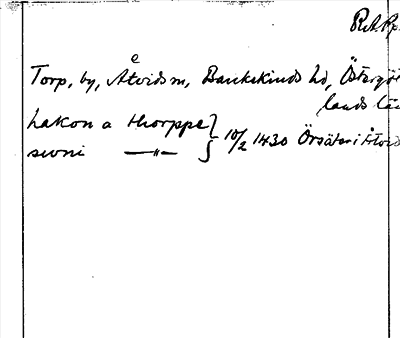 RA.Pp.
Torp, by, Åtvids sn, Bankekinds hd, Östergöt
lands län
hakon a thorppe } 10/2 1430 Örsäter i Åtvid
swni —"—